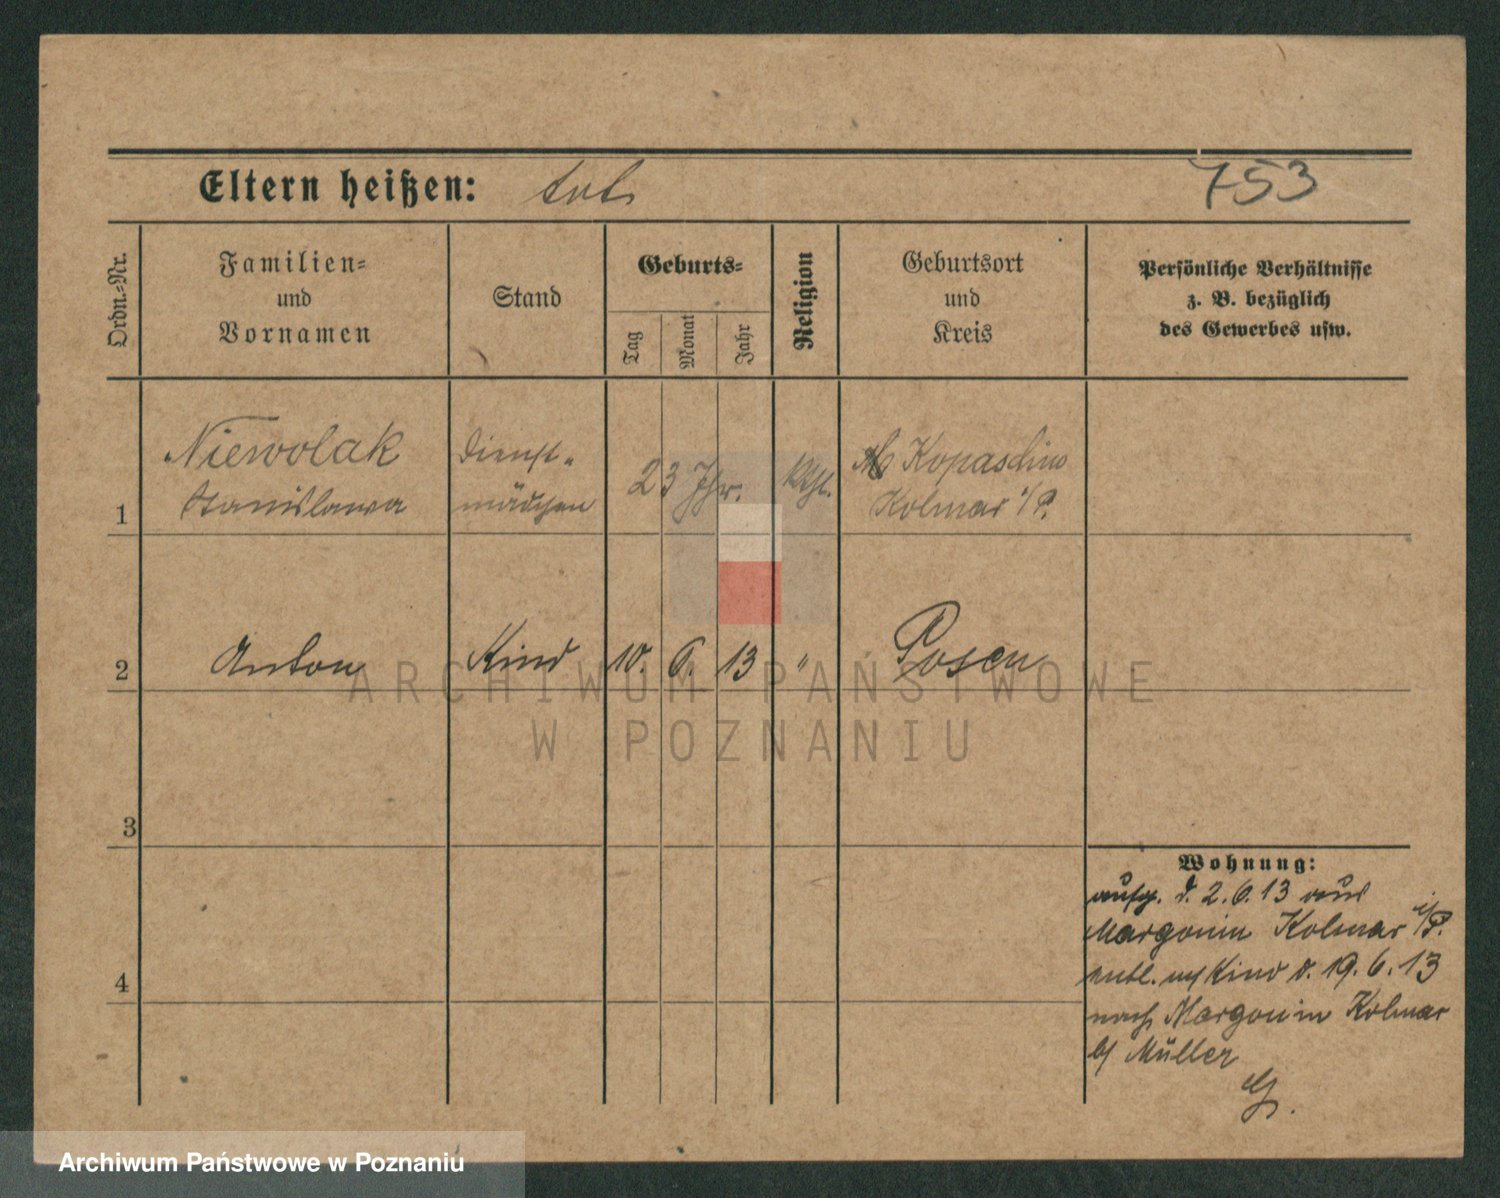 Eltern heißen: tot. 753
Ordn.-Nr.
Familien-
und
Vornamen
Stand
Geburts-
Tag
Monat
Jahr
Religion
Geburtsort
und
Kreis
Persönliche Verhältnisse
z. B. bezüglich
des Gewerbes usw.
1
Niewolak
Stanislawa
Dienst-
mädchen
23 Jhr.
kth.
Kopaschin
Kolmar i/P.
2 Anton Kind 10. 6. 13 " Posen
3
4
Wohnung:
aufg. d. 2.6.13 aus
Margonin Kolmar i/P.
entl. mit Kind d. 19.6.13
nach Margonin Kolmar
b/ Müller
G.
ARCHIWUM PAŃSTWOWE
W POZNANIU
Archiwum Państwowe w Poznaniu